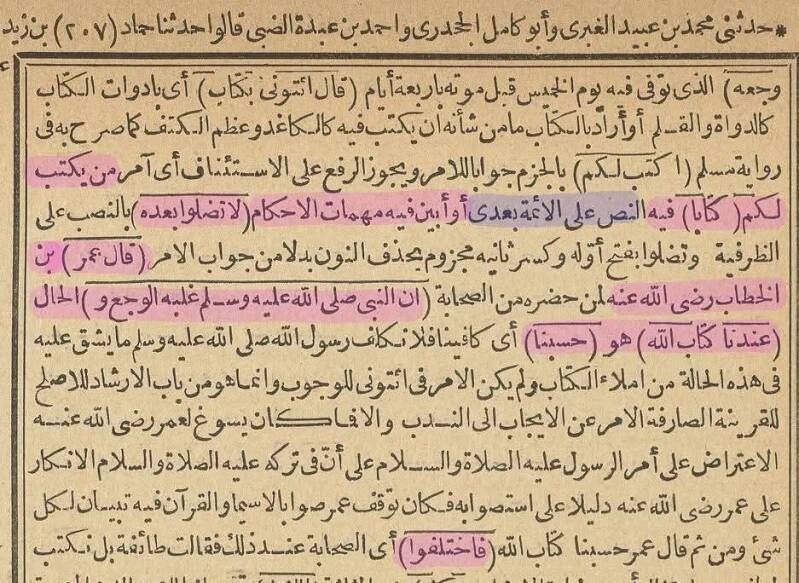 * حدثنى محمد بن عبيد الغبرى وأبو كامل الجحدرى واحمد بن عبدة الضبى قالوا حدثنا حماد (٢٠٧) بن زيد
وجعه) الذى توفى فيه يوم الخميس قبل موته باربعة أيام (قال ائتونى بكتاب) أى بادوات الكتاب
كالدواة والقلم أو أراد بالكتاب ما من شأنه أن يكتب فيه كالكاغد وعظم الكتف كما صرح به فى
رواية مسلم (اكتب لكم) بالجزم جوابا للامر ويجوز الرفع على الاستئناف أى آمر من يكتب
لكم (كتابا) فيه النص على الائمة بعدى أو أبين فيه مهمات الاحكام (لا تضلوا بعده) بالنصب على
الظرفية وتضلوا بفتح أوله وكسر ثانيه مجزوم بحذف النون بدلا من جواب الامر (قال عمر) بن
الخطاب رضى الله عنه لمن حضره من الصحابة (ان النبى صلى الله عليه وسلم غلبه الوجع و) الحال
(عندنا كتاب الله) هو (حسبنا) أى كافينا فلا نكلف رسول الله صلى الله عليه وسلم ما يشق عليه
فى هذه الحالة من املاء الكتاب ولم يكن الامر فى ائتونى للوجوب وانما هو من باب الارشاد للاصلح
للقرينة الصارفة الامر عن الايجاب الى الندب والا فما كان يسوغ لعمر رضى الله عنه
الاعتراض على أمر الرسول عليه الصلاة والسلام على أنّ فى تركه عليه الصلاة والسلام الانكار
على عمر رضى الله عنه دليلا على استصوابه فكان توقف عمر صوابا لاسيما والقرآن فيه تبيان لكل
شئ ومن ثم قال عمر حسبنا كتاب الله (فاختلفوا) أى الصحابة عند ذلك فقالت طائفة بل نكتب